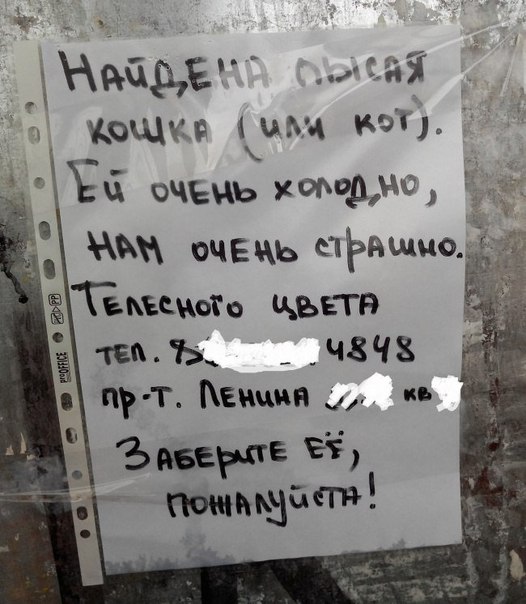 НАЙДЕНА ЛЫСАЯ
КОШКА (ИЛИ КОТ).
ЕЙ ОЧЕНЬ ХОЛОДНО,
НАМ ОЧЕНЬ СТРАШНО.
ТЕЛЕСНОГО ЦВЕТА
ТЕЛ. 8 4848
ПР-Т. ЛЕНИНА КВ
ЗАБЕРИТЕ ЕЁ,
ПОЖАЛУЙСТА!
PROOFFICE PP